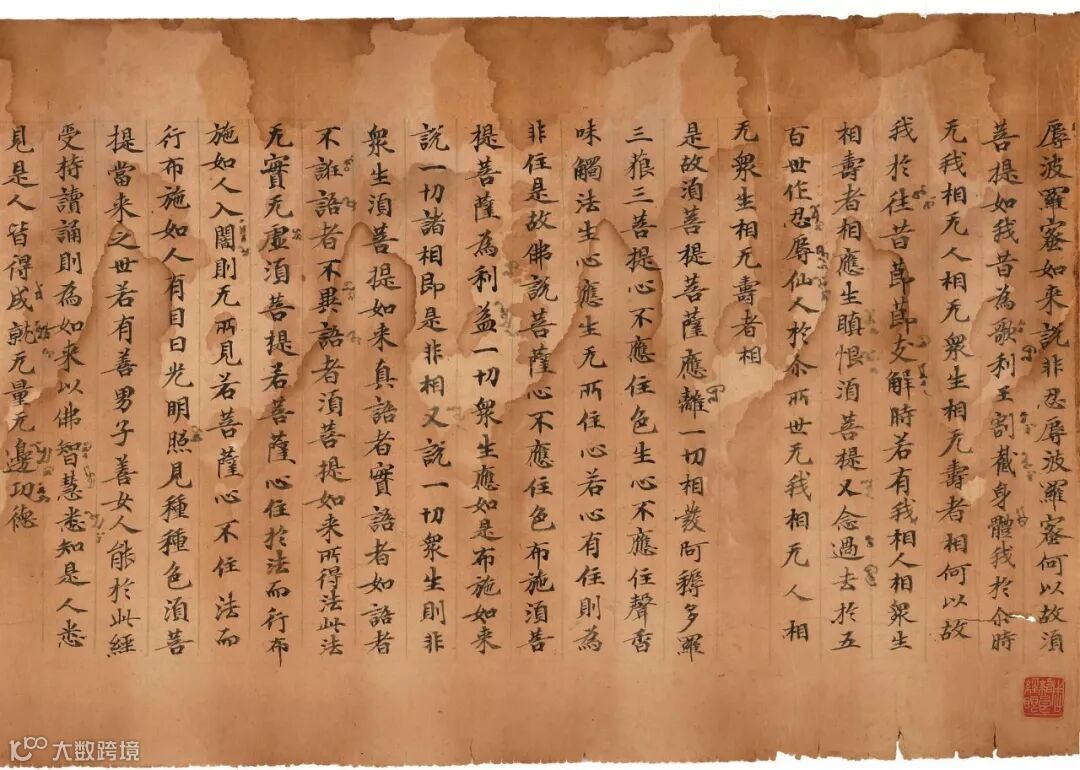 辱波羅蜜如来說非忍辱波羅蜜何以故湏
菩提如我昔為歌利王割截身體我於尒時
无我相无人相无衆生相无壽者相何以故
我於往昔莭莭支解時若有我相人相衆生
相壽者相應生瞋恨湏菩提又念過去於五
百世作忍辱仙人於尒所世无我相无人相
无衆生相无壽者相
是故湏菩提菩薩應離一切相發阿耨多羅
三狼三菩提心不應住色生心不應住聲香
味觸法生心應生无所住心若心有住則為
非住是故佛說菩薩心不應住色布施湏菩
提菩薩為利益一切衆生應如是布施如来
說一切諸相即是非相又說一切衆生則非
衆生湏菩提如来真語者實語者如語者
不誑語者不異語者湏菩提如来所得法此法
无實无虛湏菩提若菩薩心住於法而行布
施如人入闇則无所見若菩薩心不住法而
行布施如人有目日光明照見種種色湏菩
提當来之世若有善男子善女人能於此經
受持讀誦則為如来以佛智慧悉知是人悉
見是人皆得成就无量无邊功德
大数跨境